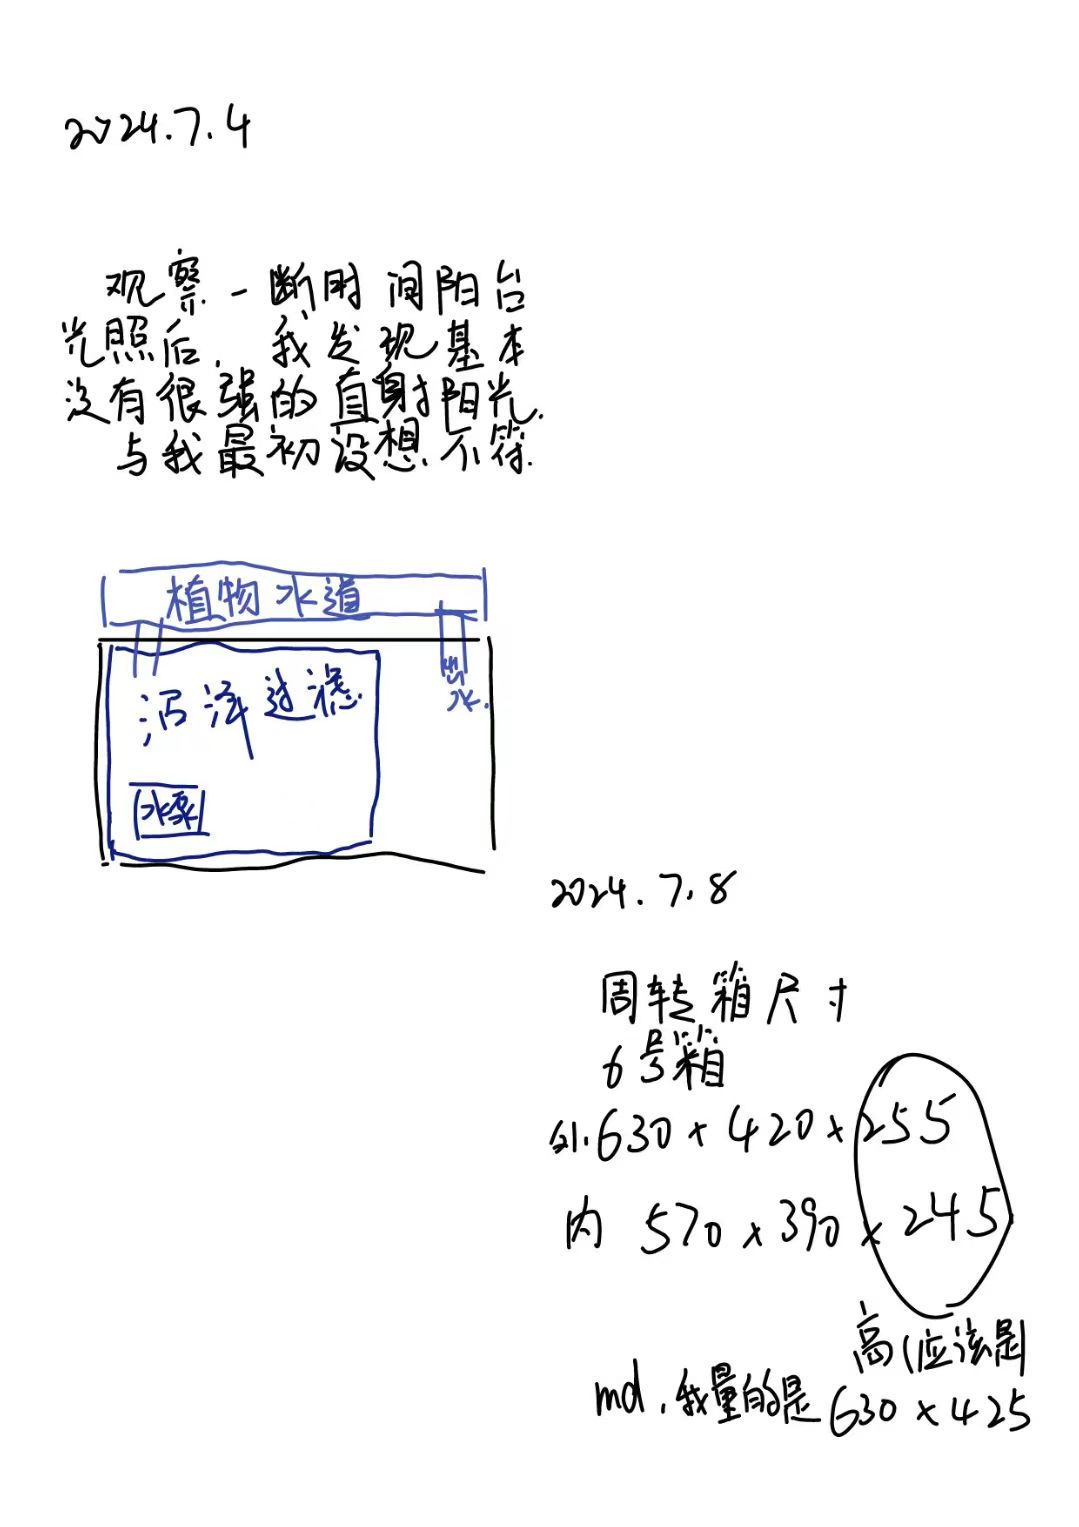 2024.7.4
观察一断时间阳台
光照后,我发现基本
没有很强的直射阳光.
与我最初设想不符.
植物水道
出水.
沼泽过滤
水泵
2024.7.8
周转箱尺寸
6号箱
外.630×420×255
内 570×390×245
高(应该是
md,我量的是630×425